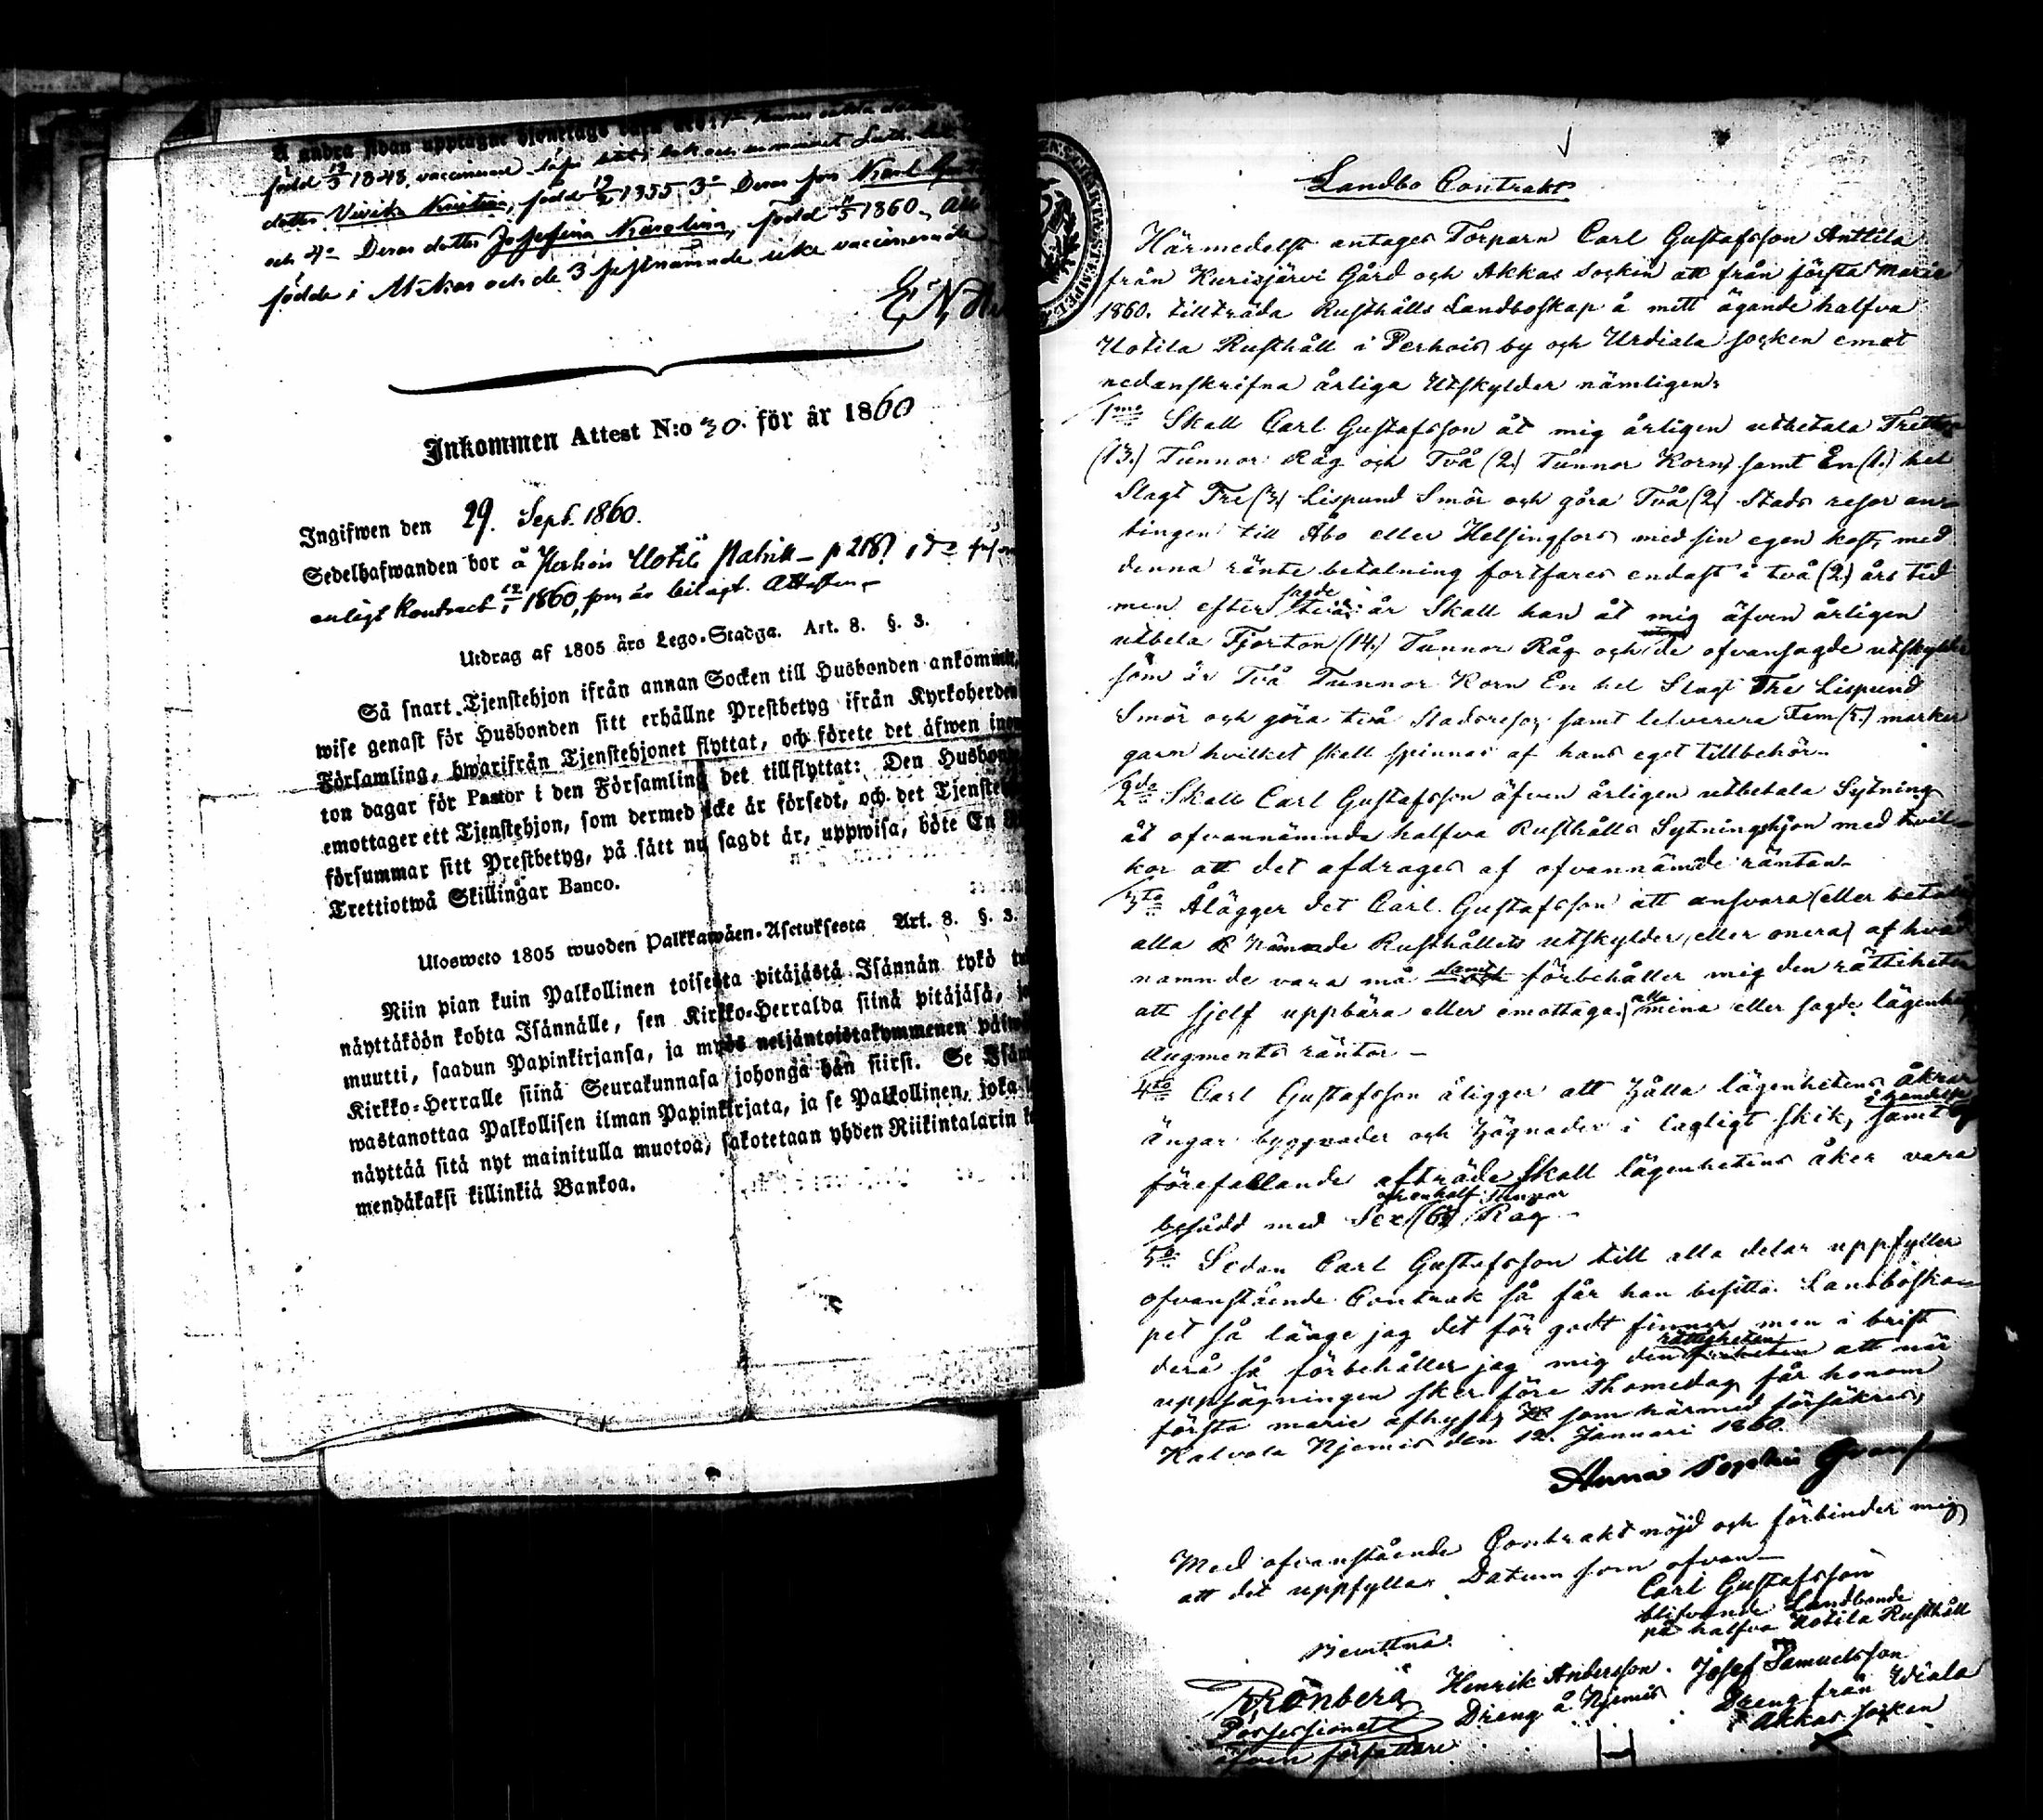 å andra sidan upptagne
född 12/3 1848, vaccinerad
dotter Vivika Kristina, född 19/2 1855 3o Deras son Karl
och 4o Deras dotter Josefina Karolina, född 1860,
födde i Akkas och de 3 sistnämnde icke vaccinerade
Inkommen Attest N:o 30. för år 1860
Ingifwen den 29. Sept. 1860.
Sedelhafwanden bor å Perhois Uotila
enligt Kontract 12/1 1860, som är bilagt Attesten.
Utdrag af 1805 års Lego-Stadga. Art. 8. §. 3.
Så snart Tjenstehjon ifrån annan Socken till Husbonden ankommit,
wise genast för Husbonden sitt erhållne Prestbetyg ifrån Kyrkoherden
Församling, hwarifrån Tjenstehjonet flyttat, och förete det äfwen inom
ton dagar för Pastor i den Församling det tillflyttat: Den Husbonde
emottager ett Tjenstehjon, som dermed icke är försedt, och det Tjenste
försummar sitt Prestbetyg, på sätt nu sagdt är, uppwisa, böte En
Trettiotwå Skillingar Banco.
Ulosweto 1805 wuoden Palkkawäen-Asetuksesta Art. 8. §. 3.
Niin pian kuin Palkollinen toisesta pitäjästä Isännän tykö
näyttäköön kohta Isännälle, sen Kirkko-Herralda siinä pitäjäsä,
muutti, saadun Papinkirjansa, ja myös neljäntoistakymmenen päiwän
Kirkko-Herralle siinä Seurakunnasa johonga hän siirsi. Se Isän
wastanottaa Palkollisen ilman Papinkirjata, ja se Palkollinen, joka
näyttää sitä nyt mainitulla muotoa, sakotetaan yhden Riikintalarin
mendäkaksi killinkiä Bankoa.
Landbo Contrakt
Härmedelst antages Torparn Carl Gustafsson Anttila
från Kurisjärvi Gård och Akkas socken att från första Marie
1860. tillträda Rusthålls Landboskap å mitt ägande halfva
Uotila Rusthåll i Perhois by och Urdiala socken emot
nedanskrifna årliga Utskylder nämligen:
1mo Skall Carl Gustafsson åt mig årligen utbetala Tretton
(13.) Tunnor Råg och Två (2.) Tunnor Korn, samt En (1.) hel
Slagt Tre (3.) Lispund Smör och göra Två (2.) Stads resor an-
tingen till Åbo eller Helsingfors med sin egen kost, med
denna ränte betalning fortfares endast i två (2.) års tid
men efter sagde två: år Skall han åt mig äfven årligen
utbeta Fjorton (14.) Tunnor Råg och de ofvansagde utskylder
som är Två Tunnor Korn En hel Slagt Tre Lispund
Smör och göra två Stadsresor, samt leverera Fem (5.) marker
garn hvilket skall spinnas af hans eget tillbehör.
2do Skall Carl Gustafsson äfven årligen utbetala Sytning
åt ofvannämnde halfva Rusthålls Sytningshjon med hvil-
kor att det afdrages af ofvannämde räntan
3tio Ålägger det Carl Gustafsson att ansvara (eller betala
alla nämnde Rusthållets utskylder, eller onera, af hvad
namn de vara må samt förbehåller mig den rättiheten
att sjelf uppbära eller emottaga, alla mina eller sagde lägenhets
augments räntor –
4to Carl Gustafsson åligger att hålla lägenhetens åkrar
ängar byggnader och hägnader i lagligt skik, samt
förefallande afträde Skall lägenhetens åker vara
besådd med Sex (6½) och en half Tunnor Råg –
5to Sedan Carl Gustafsson till alla delar uppfyller
ofvanstående Contrak så får han besitta Landboska-
pet så länge jag det för godt finner men i brist
derå så förbehåller jag mig den rättigheten att när
uppsägningen sker före Thomedag får honom
första marie afhysa, som härmed försäkras,
Kalvola Njemis den 12. Januari 1860.
Anna Sophia
Med ofvanstående Contrakt nöjd och förbinder mig
att det uppfylla. Datum som ofvan –
Carl Gustafsson
blifvande Landbonde
på halfva Uotila Rusthåll
Bevittna.
Henrik Andersson. Josef Samuelsson
Dreng å Njemis Dreng från Wiala
Akkas socken
äfven författare